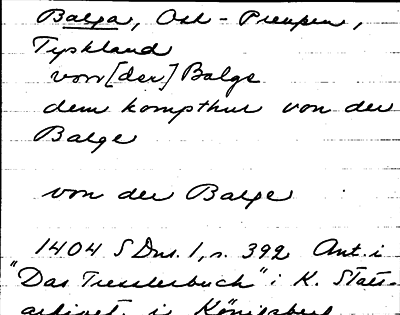 Balga, Ost-Preuszen,
Tyskland
von [der] Balge
dem kompthur von der
Balge
von der Balge
1404 SDns. 1, s. 392 Ant. i
"Das Tresslerbuch" i K. Stats-
arkivet i Königsberg